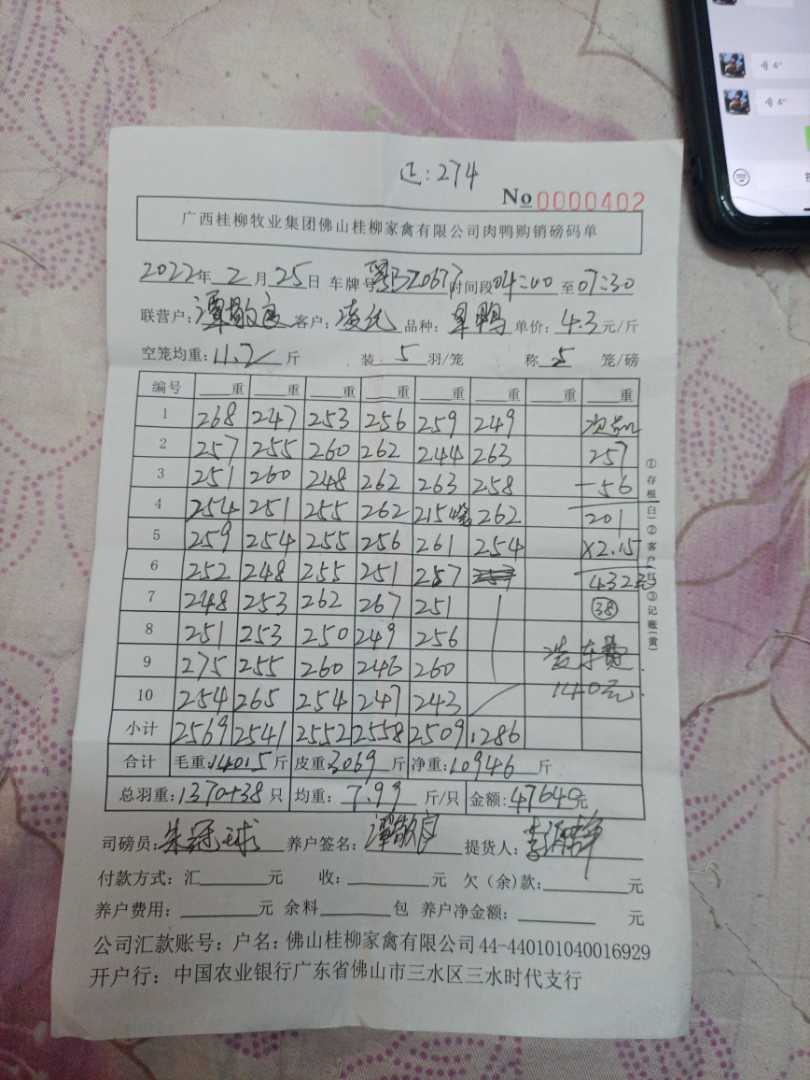 正:274
No 0000402
广西桂柳牧业集团佛山桂柳家禽有限公司肉鸭购销磅码单
2022年 2 月 25 日 车牌号 粤BZ0677 时间段 04:00 至 07:30
联营户: 谭敬良 客户: 凌统 品种: 旱鸭 单价: 4.3 元/斤
空笼均重: 11.2 斤 装 5 羽/笼 称 5 笼/磅
编号 重 重 重 重 重 重 重 重
1 268 247 253 256 259 249 次品
2 257 255 260 262 244 263 257
3 251 260 248 262 263 258 -56
4 254 251 255 262 215 262 201
5 259 254 255 256 261 254 X2.15
6 252 248 255 251 257 432元
7 248 253 262 267 251 38
8 251 253 250 249 256
9 275 255 260 246 260 车费
10 254 265 254 247 243 140元
小计 2569 2541 2552 2558 2509 1286
合计 毛重: 14015 斤 皮重: 3069 斤 净重: 10946 斤
总羽重: 1370+38 只 均重: 7.99 斤/只 金额: 47640元
司磅员: 朱冠球 养户签名: 谭敬良 提货人:
付款方式: 汇 元 收: 元 欠(余)款: 元
养户费用: 元 余料 包 养户净金额: 元
公司汇款账号: 户名: 佛山桂柳家禽有限公司 44-440101040016929
开户行: 中国农业银行广东省佛山市三水区三水时代支行
①存根(白)②客户(红)③记账(黄)
4"
4"